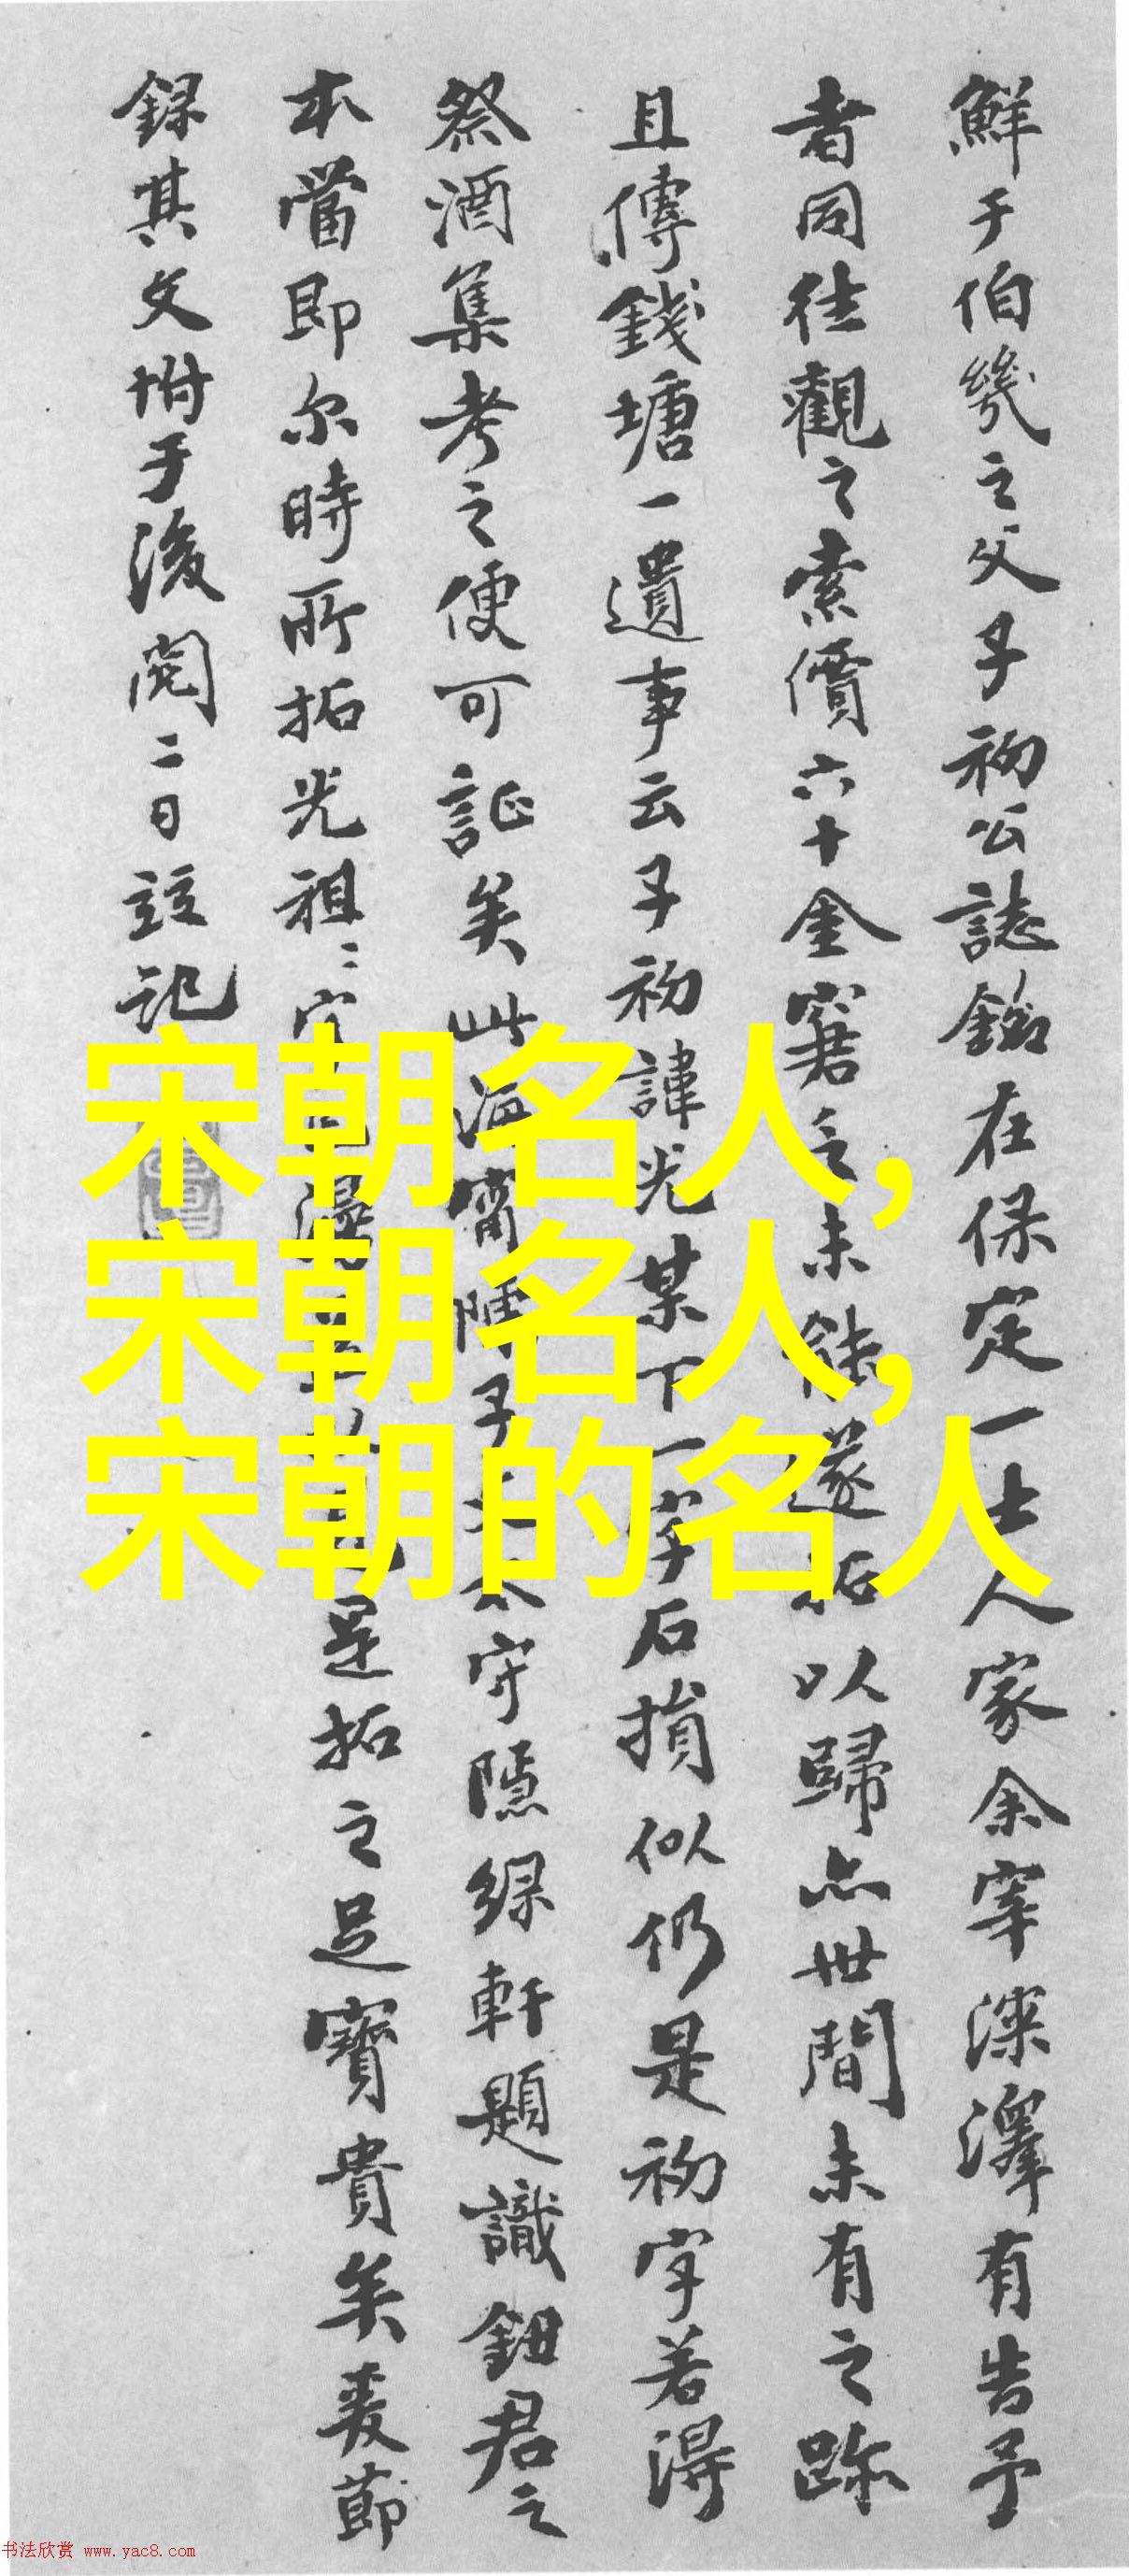 鮮于伯幾之父子初公誌銘在保定一士人家余宰深澤有告予
者同往觀之索價六十金窘之未能遂拓以歸亦世間未有之跡
且傳錢塘一遺事云子初諱光某下一字石損似仍是初字若得
祭酒集考之便可証矣此海甯陳子太守隱綠軒題識鈕君之
本當即尔時所拓光祖二字是拓之足寶貴矣爰節
錄其文坿于後閏二日記
宋朝名人,
宋朝名人,
宋朝的名人
书法欣赏 www.yac8.com